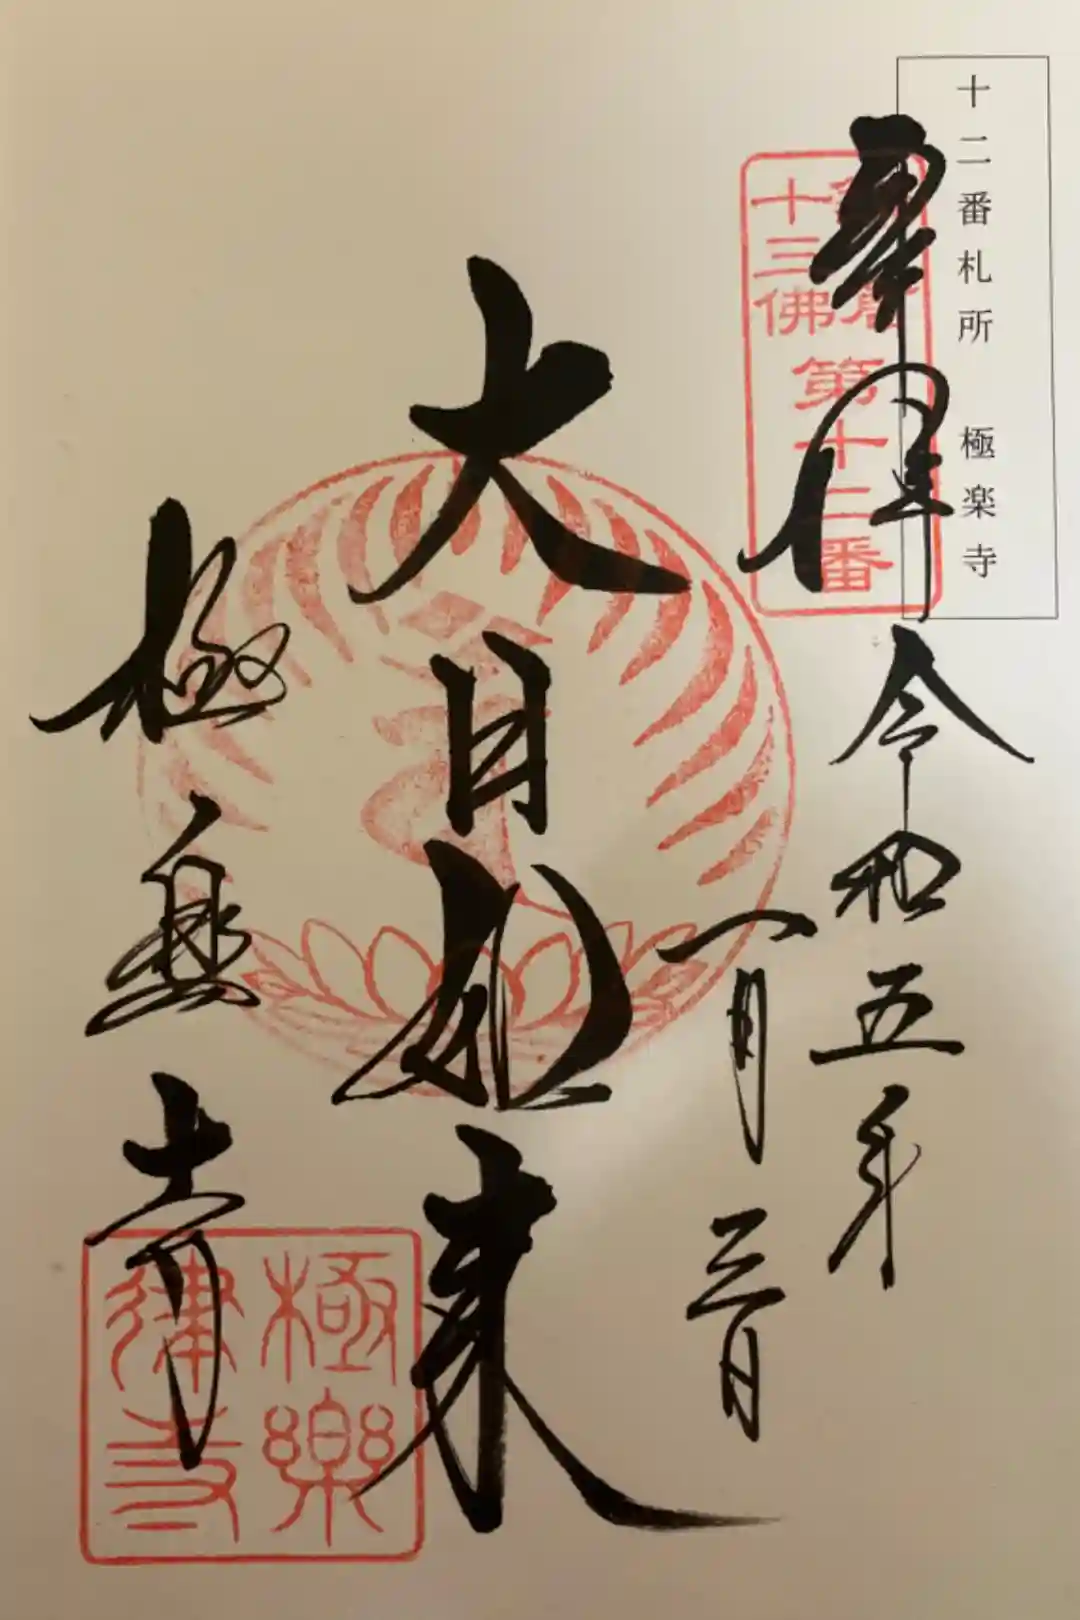 十二番札所 極楽寺
奉拝
十三佛
第十二番
令和五年
一月三日
大日如来
極楽寺
極樂律寺